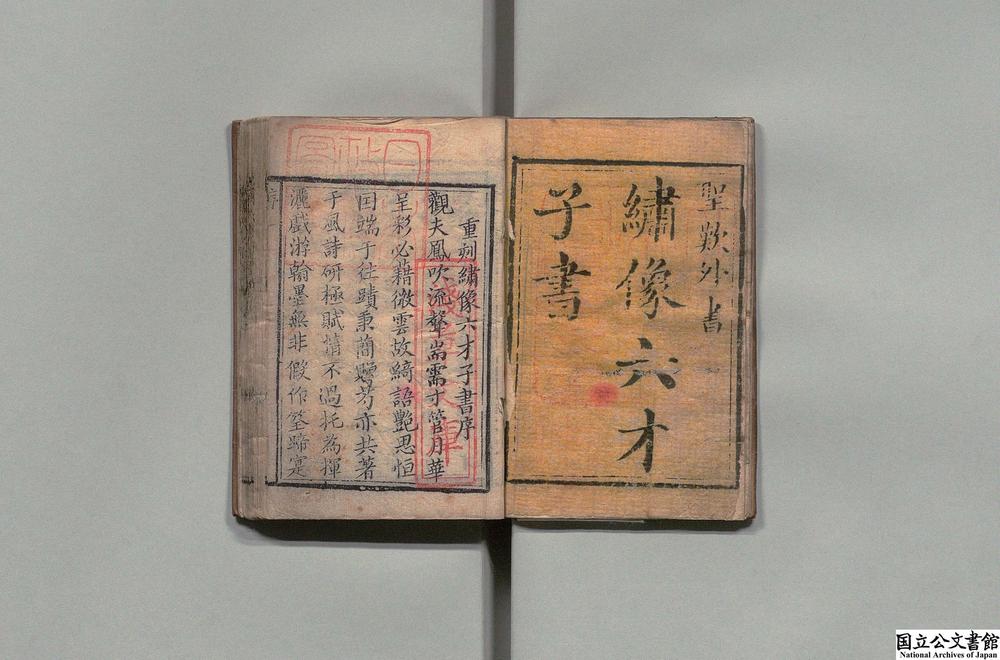 聖歎外書
繡像六才
子書
重刻繡像六才子書序
觀夫鳳吹流聲耑需才管月華
呈彩必藉微雲故綺語艷思恒
囙端于往蹟秉蕑贈芍亦共著
于風詩研極賦情不過托為揮
灑戲游翰墨無非假作筌蹄寔
序
淺草文庫
国立公文書館
National Archives of Japan